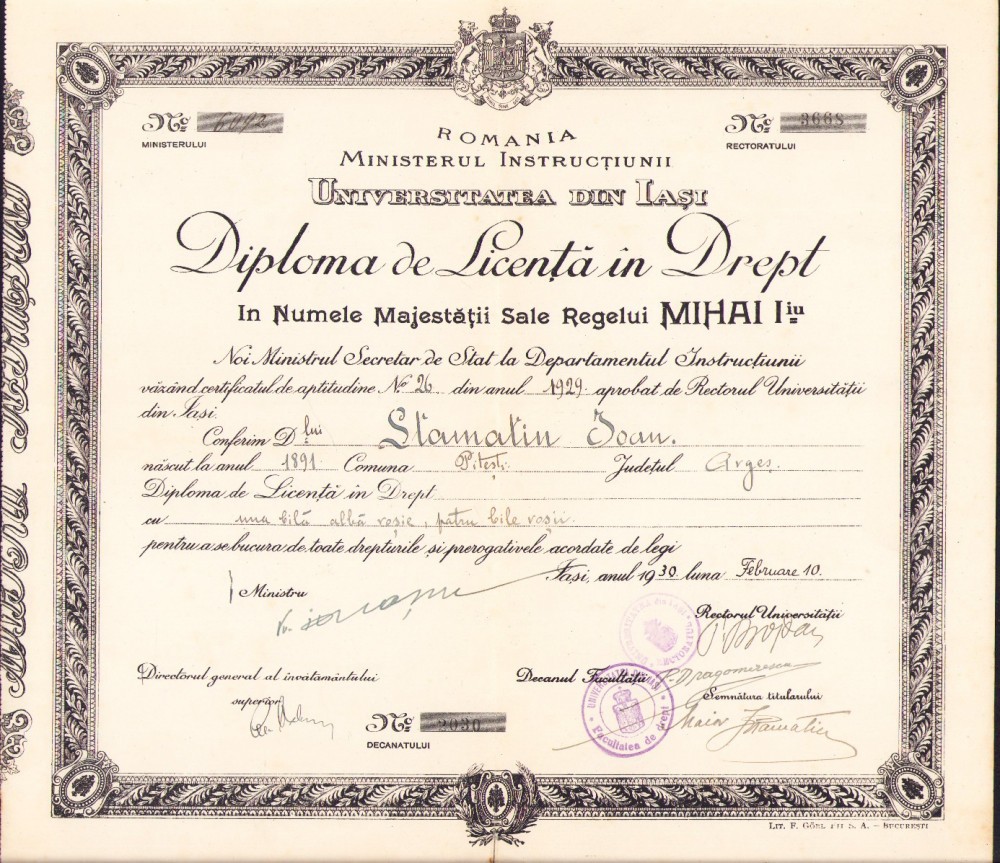 No 6092
MINISTERULUI
No 3668
RECTORATULUI
ROMANIA
MINISTERUL INSTRUCȚIUNII
UNIVERSITATEA DIN IAȘI
Diploma de Licență în Drept
In Numele Majestății Sale Regelui MIHAI Iiu
Noi Ministrul Secretar de Stat la Departamentul Instrucțiunii
văzând certificatul de aptitudine No 26 din anul 1929 aprobat de Rectorul Universității
din Iași.
Conferim Dlui Stamatin Ioan.
născut la anul 1891 Comuna Pitești Județul Argeș.
Diploma de Licență în Drept
cu una bilă albă roșie, patru bile roșii.
pentru a se bucura de toate drepturile și prerogativele acordate de legi
Iași, anul 1930 luna Februare 10.
Ministru
Rectorul Universității
Directorul general al învățământului
superior
Decanul Facultății P. Dragomirescu
Semnătura titularului
Maior I Stamatin
No 2030
DECANATULUI
Facultatea de drept
LIT. F. GÖBL FII S. A. – BUCUREȘTI